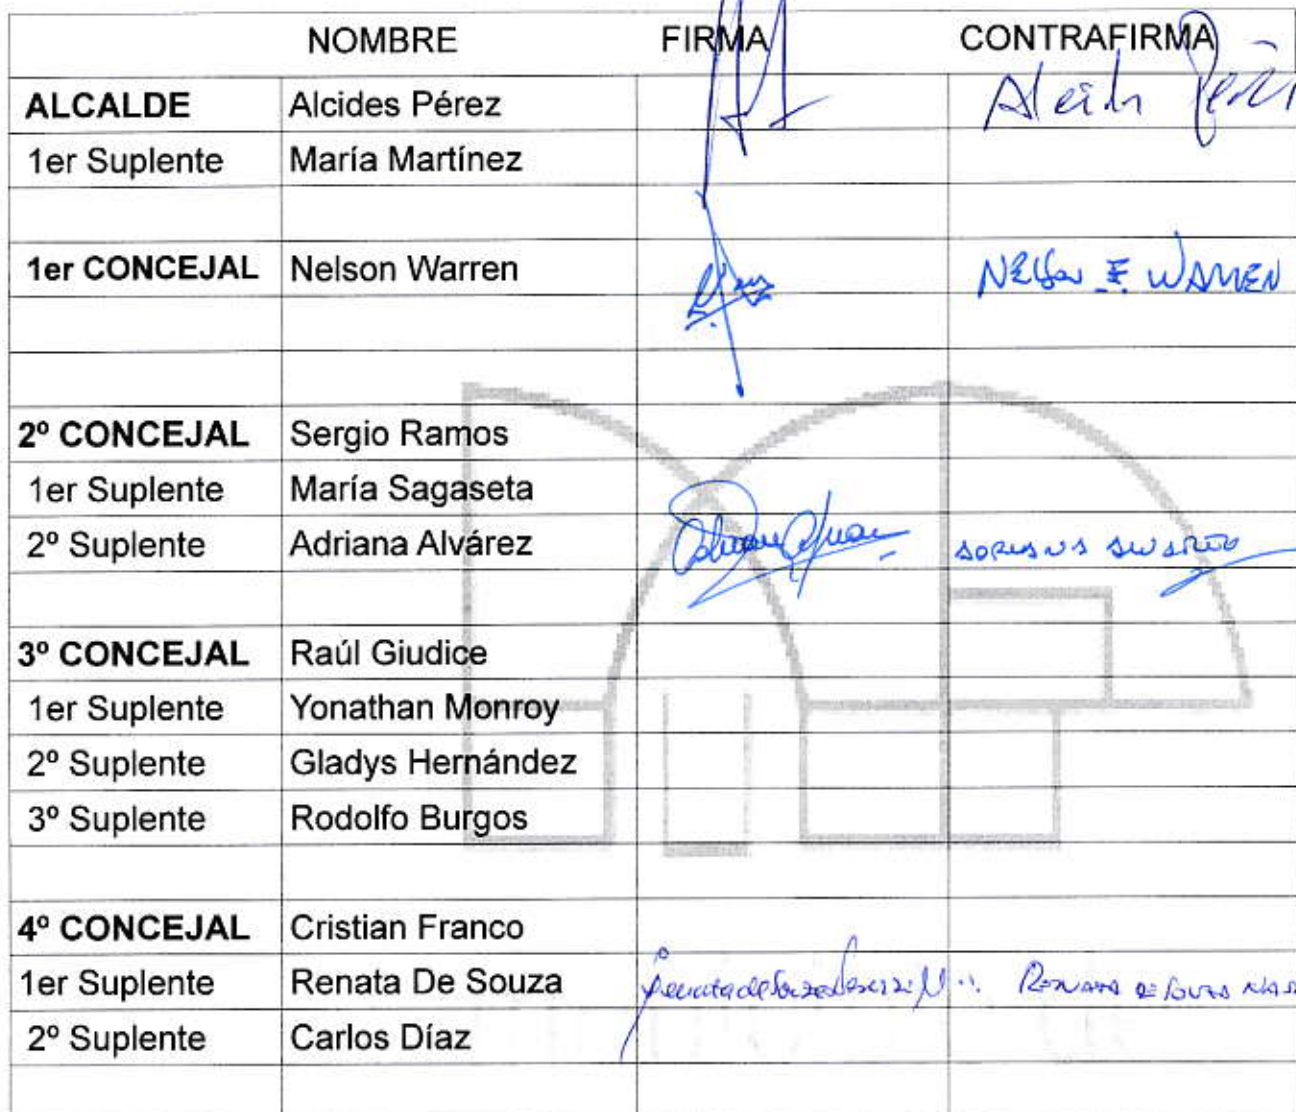 NOMBRE FIRMA CONTRAFIRMA
ALCALDE Alcides Pérez Alcides Pérez
1er Suplente María Martínez
1er CONCEJAL Nelson Warren Nelson E. WARREN
2º CONCEJAL Sergio Ramos
1er Suplente María Sagaseta
2º Suplente Adriana Alvárez ADRIANA ALVAREZ
3º CONCEJAL Raúl Giudice
1er Suplente Yonathan Monroy
2º Suplente Gladys Hernández
3º Suplente Rodolfo Burgos
4º CONCEJAL Cristian Franco
1er Suplente Renata De Souza RENATA DE SOUZA
2º Suplente Carlos Díaz